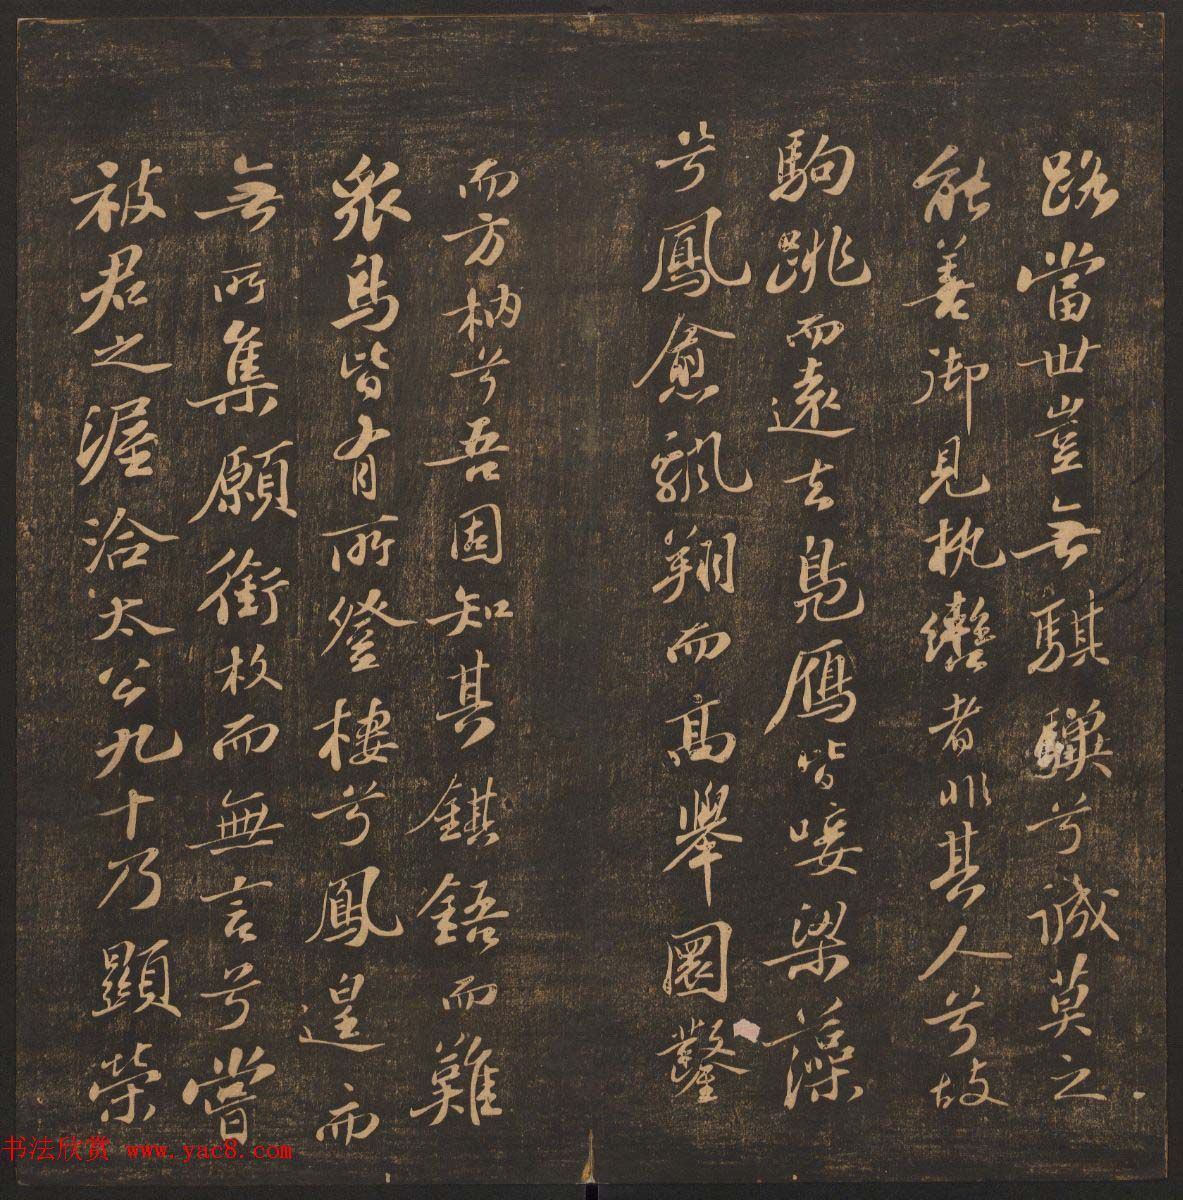 路當世豈無騏驥兮誠莫之
能善御見執轡者非其人兮故
駒跳而遠去鳧雁皆唼梁藻
兮鳳愈飄翔而高舉圜鑿
而方枘兮吾固知其鉏鋙而難
眾鳥皆有所登棲兮鳳遑而
無所集願銜枚而無言兮嘗
被君之渥洽太公九十乃顯榮
书法欣赏 www.yac8.com